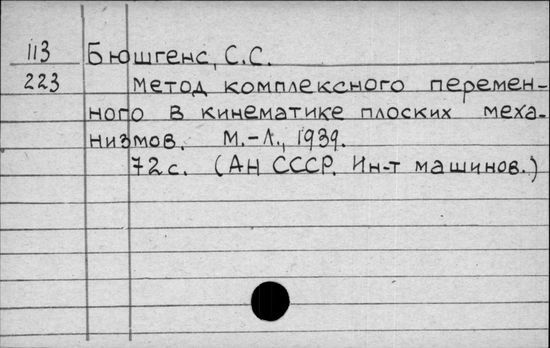 113 Бюшгенс, С.С.
223 Метод комплексного перемен-
ного в кинематике плоских меха-
низмов. М.-Л., 1939.
72 с. (АН СССР. Ин-т машинов.)